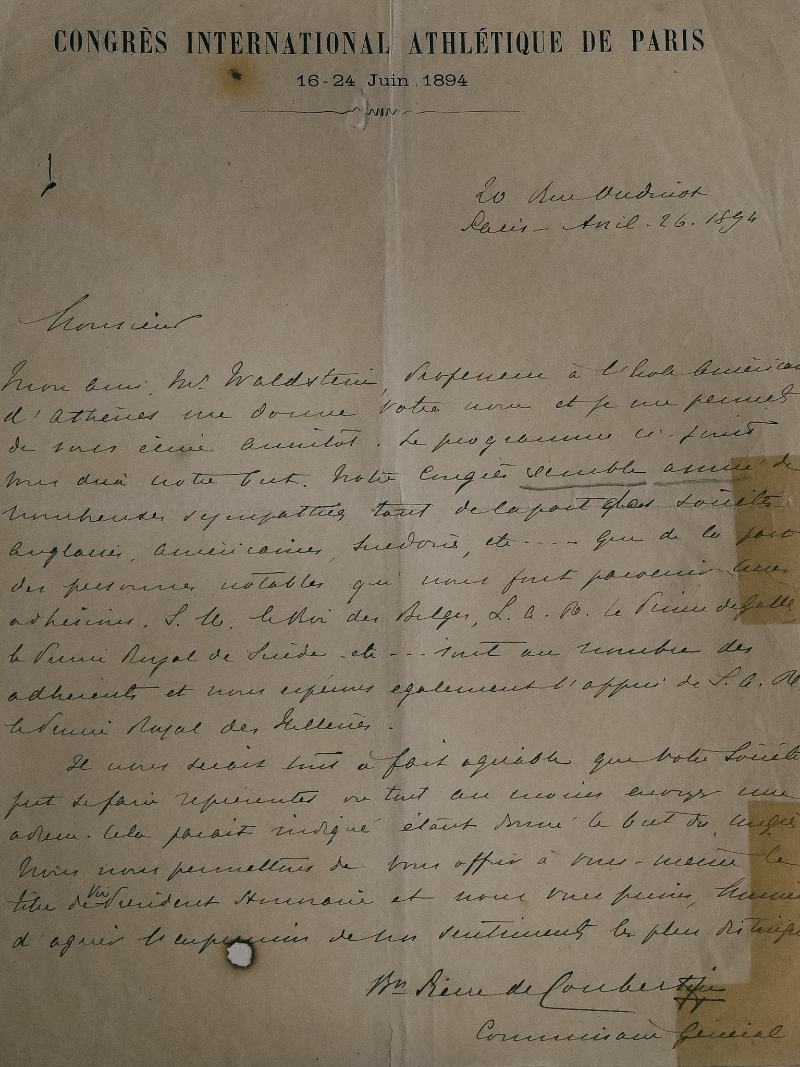 CONGRÈS INTERNATIONAL ATHLÉTIQUE DE PARIS
16-24 Juin 1894
20 Rue Oudinot
Paris – Avril . 26. 1894
Monsieur
Mon ami, Mr Waldstein, Professeur à l'École Américaine
d'Athènes me donne votre nom et je me permets
de vous écrire aussitôt. Le programme ci-joint
vous dira notre but. Notre Congrès semble assuré de
nombreuses sympathies tant de la part des sociétés
anglaises, américaines, suédoises, etc .... que de la part
des personnes notables qui nous font parvenir leurs
adhésions. S. M. le Roi des Belges, S. A. R. le Prince de Galles
le Prince Royal de Suède etc ... sont au nombre des
adhérents et nous espérons également l'appui de S. A. R.
le Prince Royal des Hellènes.
Il nous serait tout à fait agréable que votre Société
put se faire représenter ou tout au moins envoyer une
adresse. Cela parait indiqué étant donné le but du congrès
Nous nous permettons de vous offrir à vous-même le
titre de Vice Président Honoraire et nous vous prions, Monsieur
d'agréer l'expression de nos sentiments les plus distingués
Bn Pierre de Coubertin
Commissaire Général